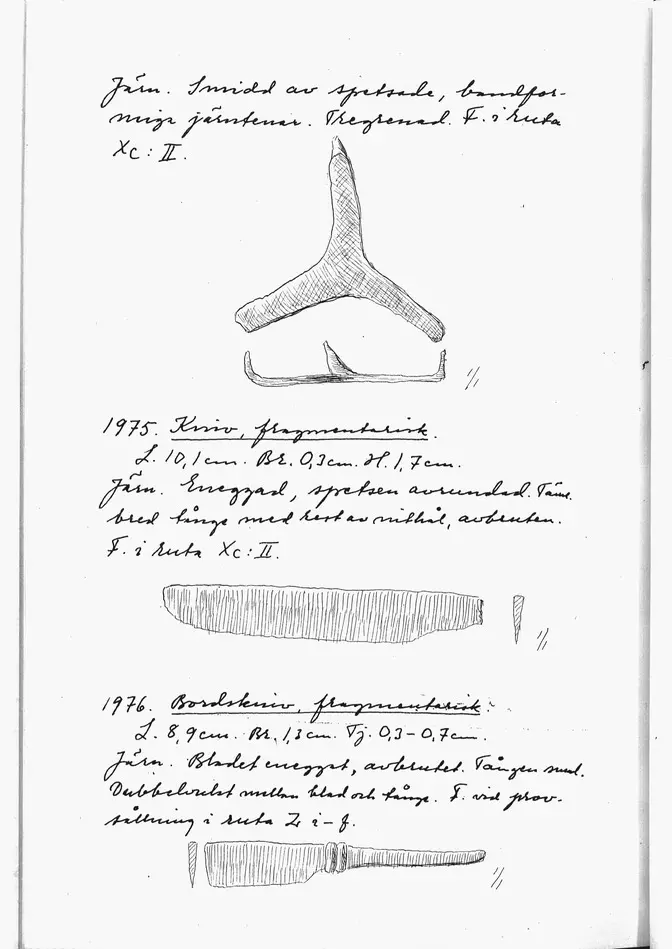 Järn. Smidd av spetsade, bandfor-
miga järntenar. Tregrenad. F. i ruta
Xc: II.
1/1
1975. Kniv, fragmentarisk.
L. 10,1cm. Br. 0,3cm. H. 1,7cm.
Järn. Eneggad, spetsen avrundad. Täml.
bred tånge med rest av nithål, avbruten.
F. i ruta Xc: II.
1/1
1976. Bordskniv, fragmentarisk.
L. 8,9cm. Br. 1,3cm. Tj. 0,3-0,7cm.
Järn. Bladet enegget, avbrutet. Tången smal.
Dubbelvulst mellan blad och tånge. F. vid prov-
sållning i ruta
1/1